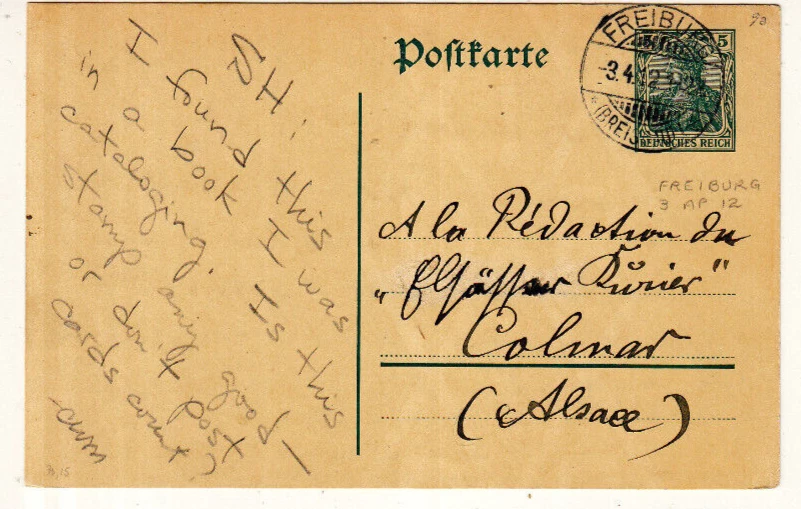 SH,
I found this
in a book I was
cataloging. Is this
stamp any good –
or don't post
cards count?
Postkarte
FREIBURG
-3.4.12
(BREISGAU)
5
DEUTSCHES REICH
90
FREIBURG
3 AP 12
A la Rédaction du
„Elsässer Kurier"
Colmar
(Alsace)